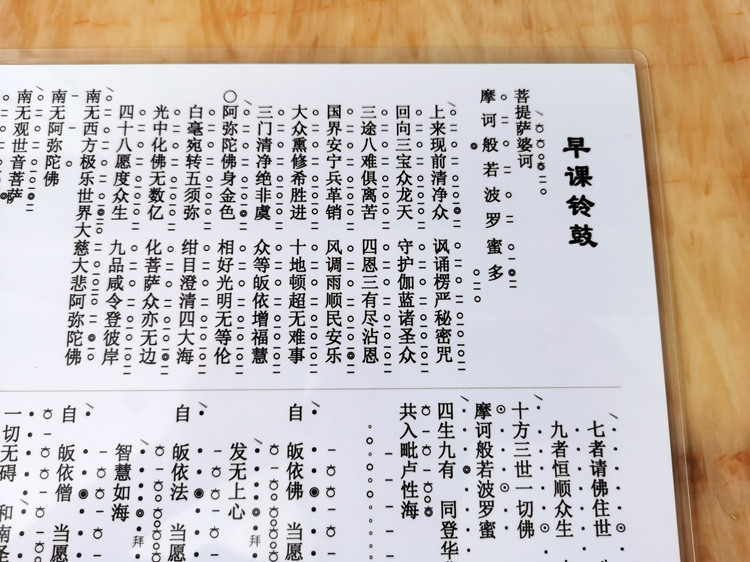 早课铃鼓
菩提萨婆诃
摩诃般若波罗蜜多
上来现前清净众 讽诵楞严秘密咒
回向三宝众龙天 守护伽蓝诸圣众
三途八难俱离苦 四恩三有尽沾恩
国界安宁兵革销 风调雨顺民安乐
大众熏修希胜进 十地顿超无难事
三门清净绝非虞 众等皈依增福慧
阿弥陀佛身金色 相好光明无等伦
白毫宛转五须弥 绀目澄清四大海
光中化佛无数亿 化菩萨众亦无边
四十八愿度众生 九品咸令登彼岸
南无西方极乐世界大慈大悲阿弥陀佛
南无阿弥陀佛
南无观世音菩萨
七者请佛住世
九者恒顺众生
十方三世一切佛
摩诃般若波罗蜜
四生九有 同登华
共入毗卢性海
自皈依佛 当愿
发无上心
自皈依法 当愿
智慧如海 拜
自皈依僧 当愿
一切无碍 和南圣